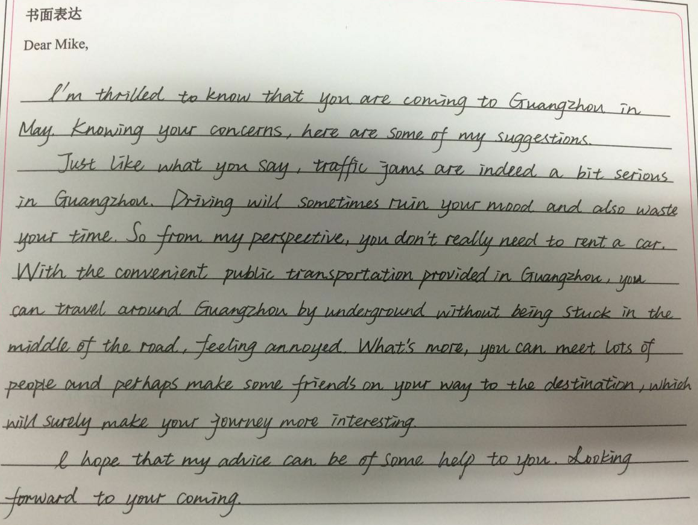 书面表达
Dear Mike,
I'm thrilled to know that you are coming to Guangzhou in
May. Knowing your concerns, here are some of my suggestions.
Just like what you say, traffic jams are indeed a bit serious
in Guangzhou. Driving will sometimes ruin your mood and also waste
your time. So from my perspective, you don't really need to rent a car.
With the convenient public transportation provided in Guangzhou, you
can travel around Guangzhou by underground without being stuck in the
middle of the road, feeling annoyed. What's more, you can meet lots of
people and perhaps make some friends on your way to the destination, which
will surely make your journey more interesting.
I hope that my advice can be of some help to you. Looking
forward to your coming.